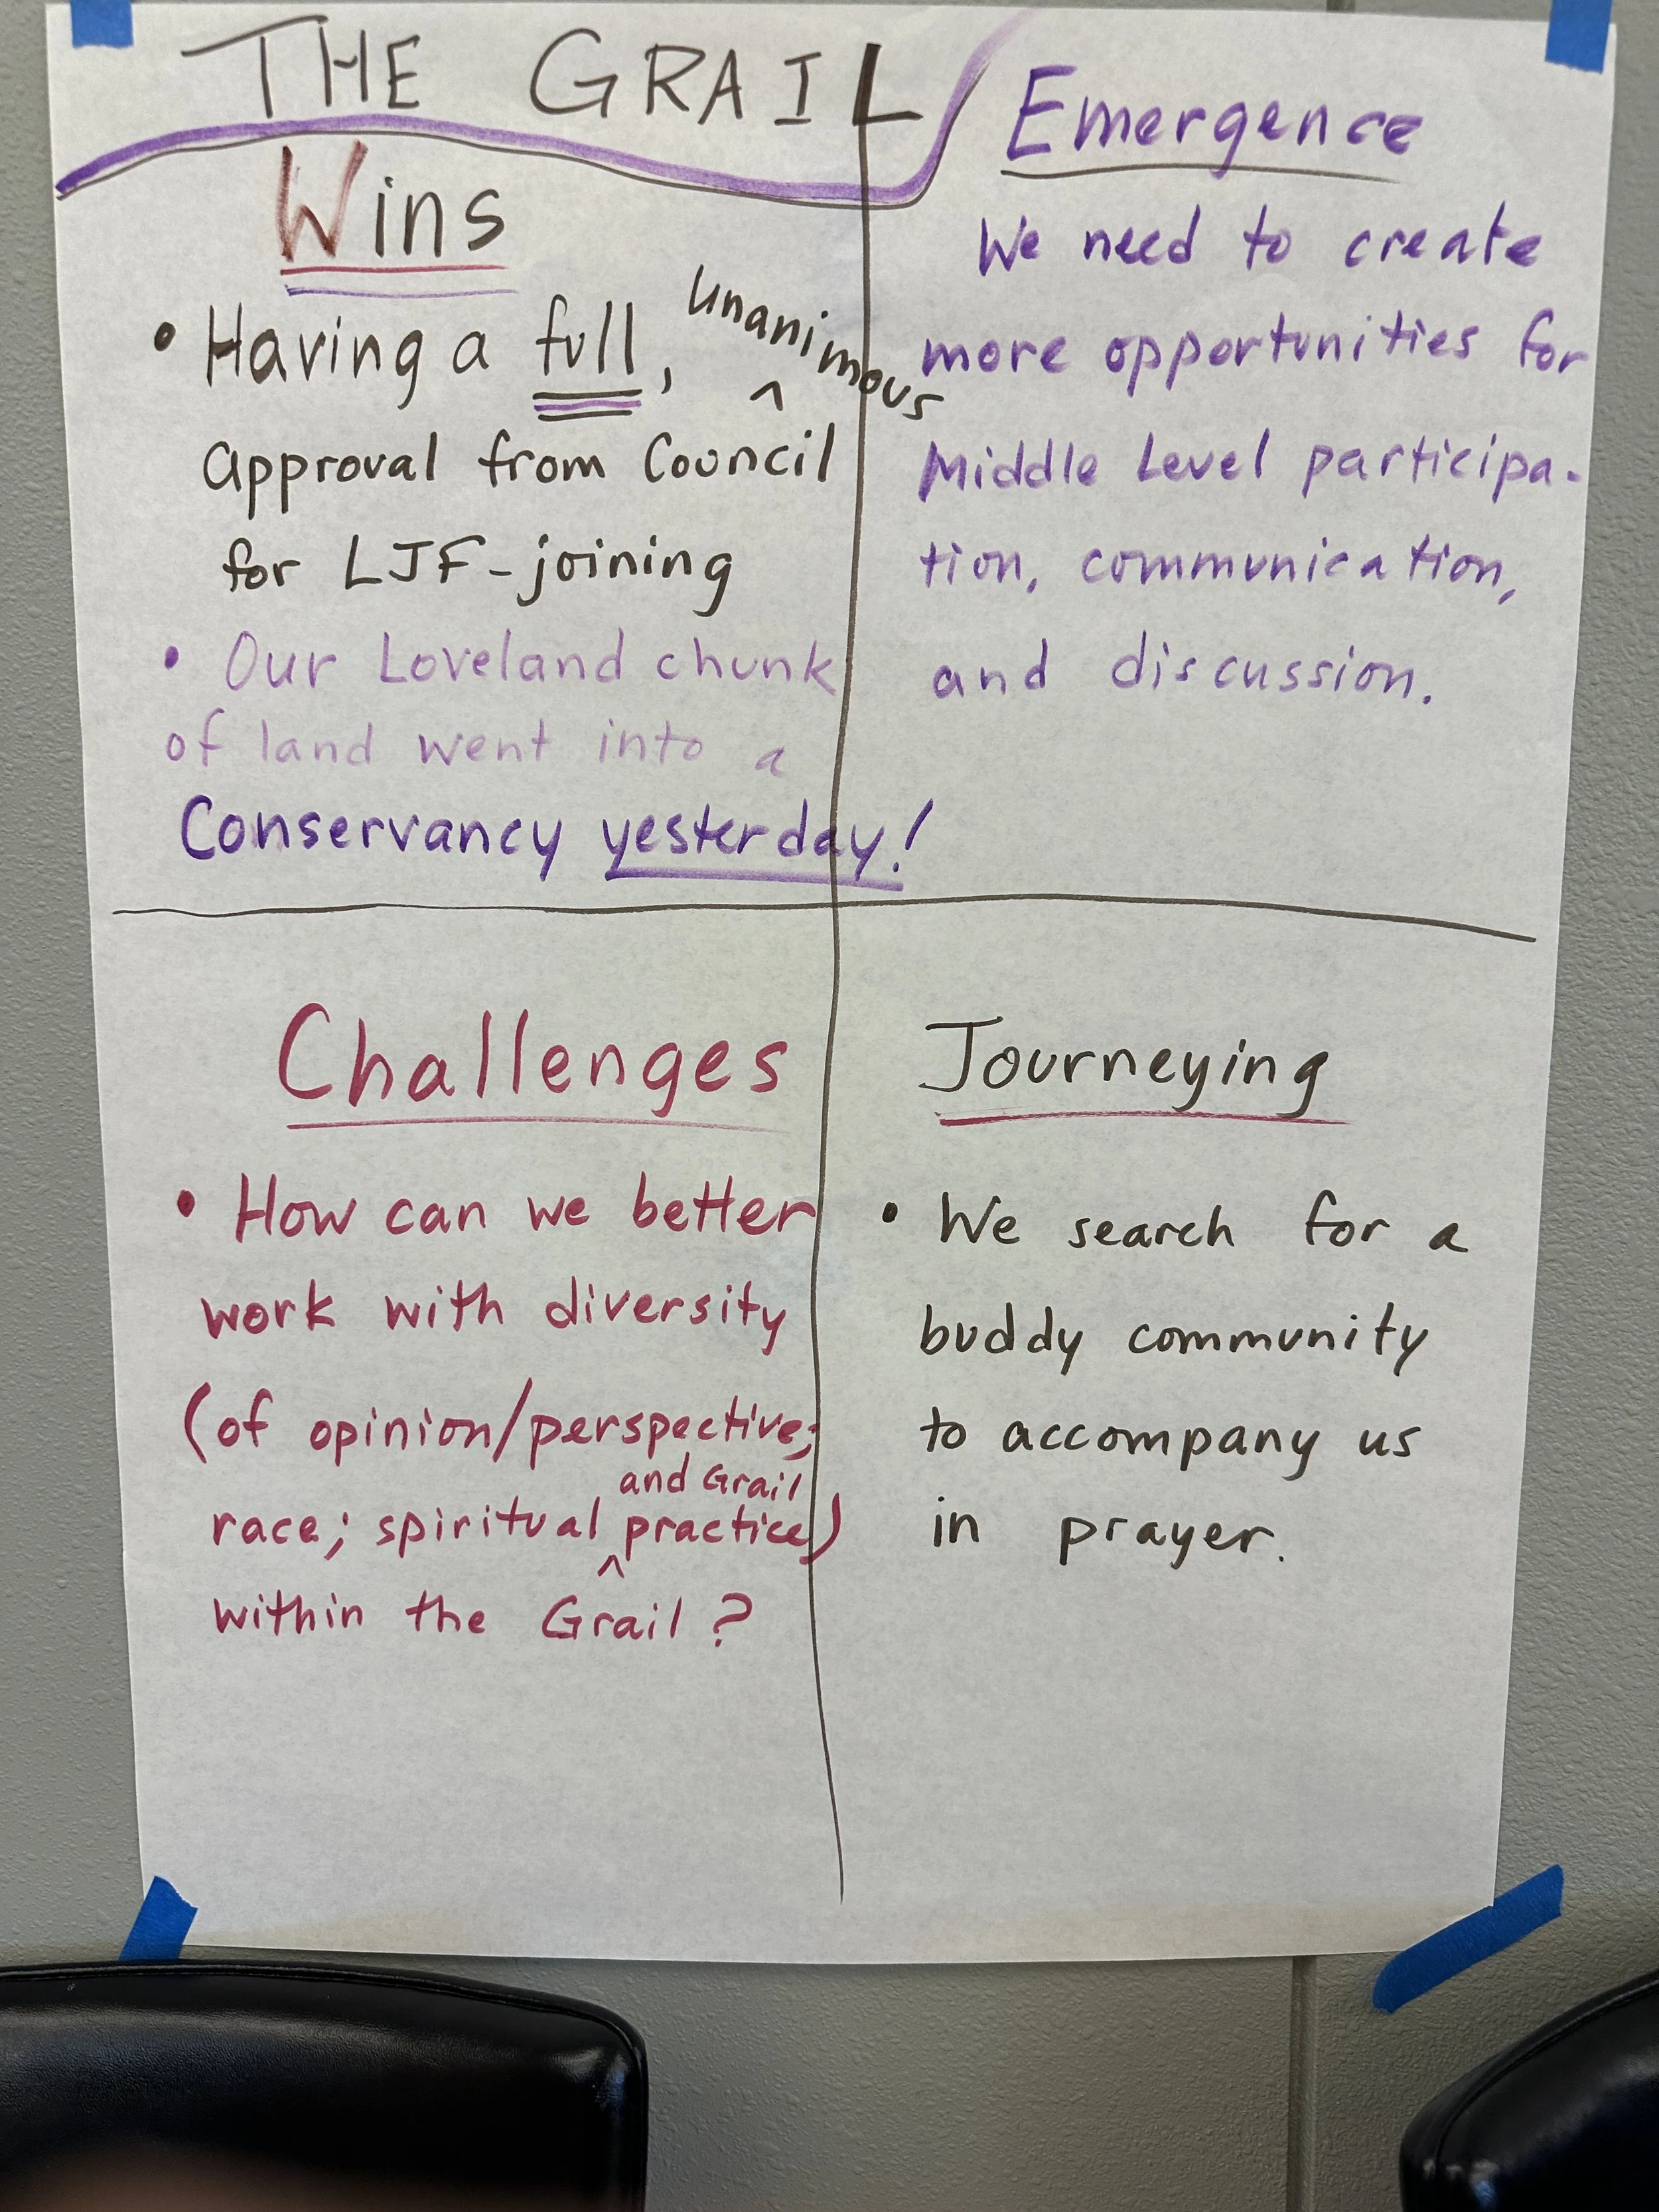 THE GRAIL
Wins
• Having a full, unanimous
approval from Council
for LJF-joining
• Our Loveland chunk
of land went into a
Conservancy yesterday!
Emergence
We need to create
more opportunities for
Middle Level participa-
tion, communication,
and discussion.
Challenges
• How can we better
work with diversity
(of opinion/perspective;
race; spiritual and Grail practice)
within the Grail?
Journeying
• We search for a
buddy community
to accompany us
in prayer.